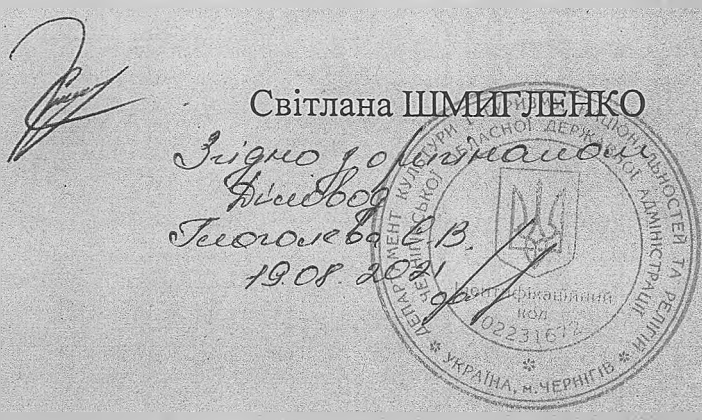 Світлана ШМИГЛЕНКО
Згідно з оригіналом
Діловод
Глоголєва Є.В.
19.08.2021
ДЕПАРТАМЕНТ КУЛЬТУРИ ТА ТУРИЗМУ, НАЦІОНАЛЬНОСТЕЙ ТА РЕЛІГІЙ
ЧЕРНІГІВСЬКОЇ ОБЛАСНОЇ ДЕРЖАВНОЇ АДМІНІСТРАЦІЇ
Ідентифікаційний
код
02231672
* УКРАЇНА, м.ЧЕРНІГІВ *